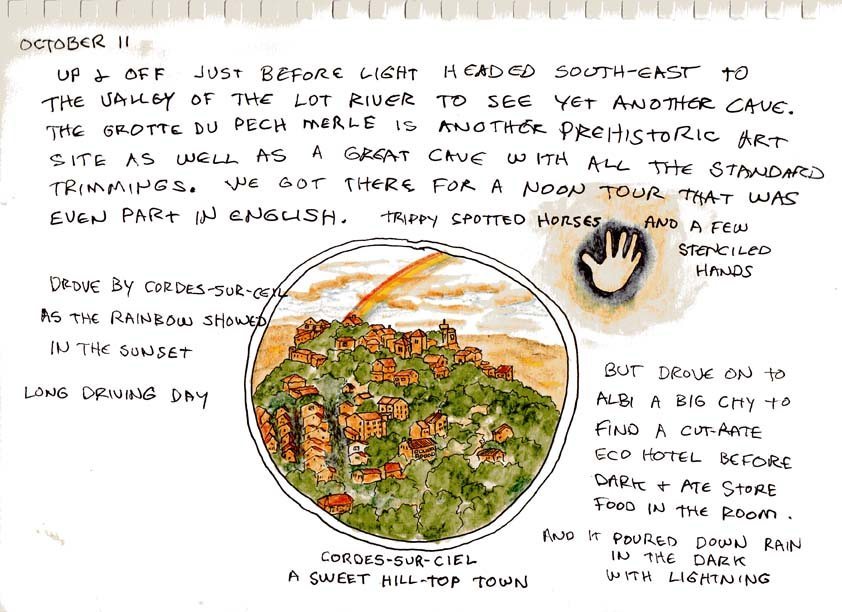 OCTOBER 11
UP & OFF JUST BEFORE LIGHT HEADED SOUTH-EAST TO
THE VALLEY OF THE LOT RIVER TO SEE YET ANOTHER CAVE.
THE GROTTE DU PECH MERLE IS ANOTHER PREHISTORIC ART
SITE AS WELL AS A GREAT CAVE WITH ALL THE STANDARD
TRIMMINGS. WE GOT THERE FOR A NOON TOUR THAT WAS
EVEN PART IN ENGLISH. TRIPPY SPOTTED HORSES AND A FEW
STENCILED
HANDS
DROVE BY CORDES-SUR-CEIL
AS THE RAINBOW SHOWED
IN THE SUNSET
LONG DRIVING DAY
BUT DROVE ON TO
ALBI A BIG CITY TO
FIND A CUT-RATE
ECO HOTEL BEFORE
DARK + ATE STORE
FOOD IN THE ROOM.
AND IT POURED DOWN RAIN
IN THE DARK
WITH LIGHTNING
CORDES-SUR-CIEL
A SWEET HILL-TOP TOWN